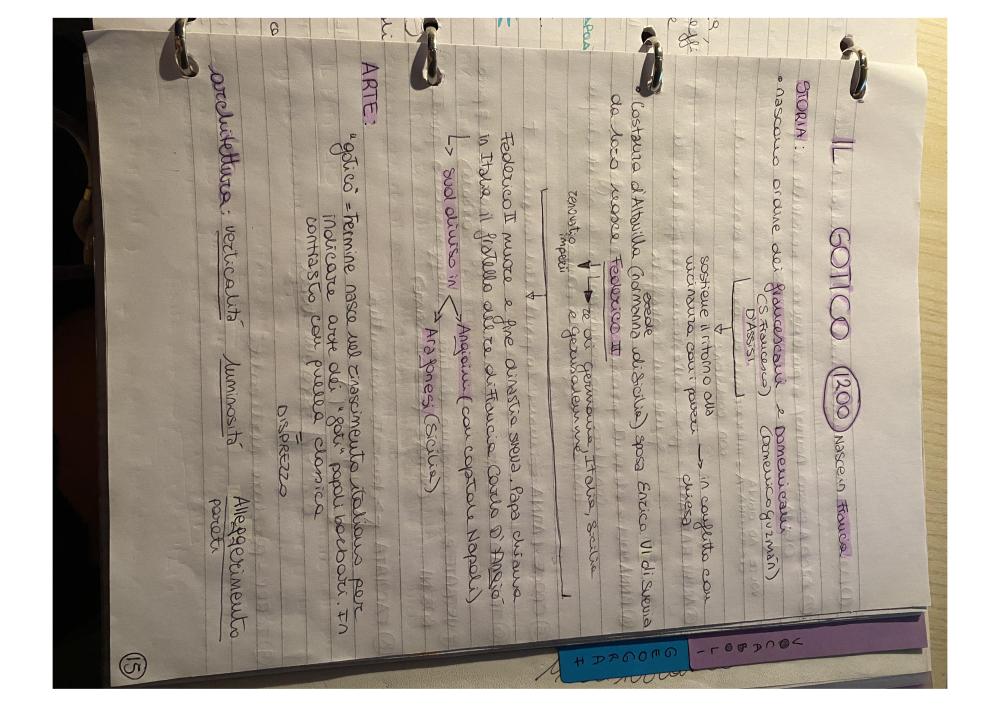 IL GOTICO 1200 Nasce in Francia
STORIA:
• nascono ordine dei francescani e Domenicani
(S. Francesco) (Domenico guzmán)
D'ASSISI
sostiene il ritorno alla
vicinanza con i poveri → in conflitto con
chiesa
• Costanza d'Altavilla (normanna di Sicilia) sposa Enrico VI di svevia
erede
da loro nasce Federico II
→ re di germania, Italia, Sicilia
e gerusalemme
impero
Federico II muore e fine dinastia sveva. Papa chiama
in Italia il fratello del re di Francia Carlo D'Angiò
↳ sud diviso in Angioini (con capitale Napoli)
Aragonesi (Sicilia)
ARTE:
"gotico" = termine nasce nel rinascimento italiano per
indicare arte dei "goti" popoli barbari. In
contrasto con quella classica
=
DISPREZZO
architettura: verticalità luminosità Alleggerimento
pareti
15
VOCABOLI
GEOGRAF